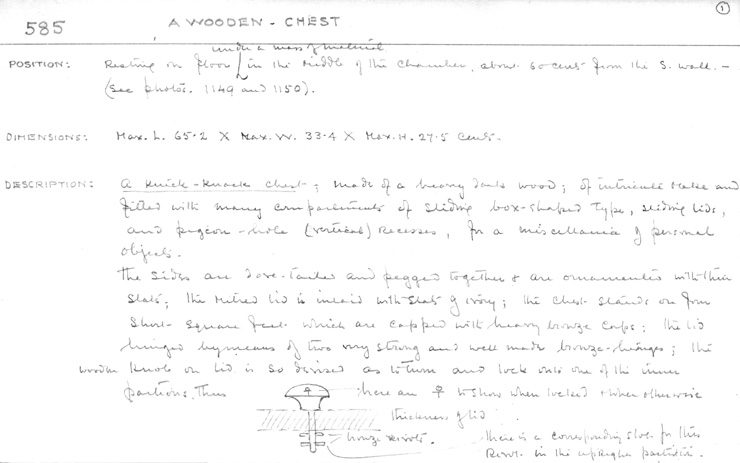 ①
585 A WOODEN - CHEST
under a mass of material
POSITION: Resting on floor in the middle of the Chamber, about 60 cents from the S. wall. -
(See photos. 1149 and 1150).
DIMENSIONS: Max. L. 65.2 X Max. W. 33.4 X Max. H. 27.5 Cents.
DESCRIPTION: A knick-knack chest; made of a heavy dark wood; of intricate make and
fitted with many compartments of sliding box-shaped type, sliding lids,
and pigeon-hole (vertical) recesses, for a miscellania of personal
objects.
The sides are dove-tailed and pegged together & are ornamented with thin
slats; the mitred lid is inlaid with slats of ivory; the chest stands on four
short square feet which are capped with heavy bronze caps; the lid
hinged by means of two very strong and well made bronze-hinges; the
wooden knob on lid is so devised as to turn and lock onto one of the inner
partions, Thus
here an to show when locked & when otherwise
thickness of lid
bronze
There is a corresponding slot for this
in the upright partition.